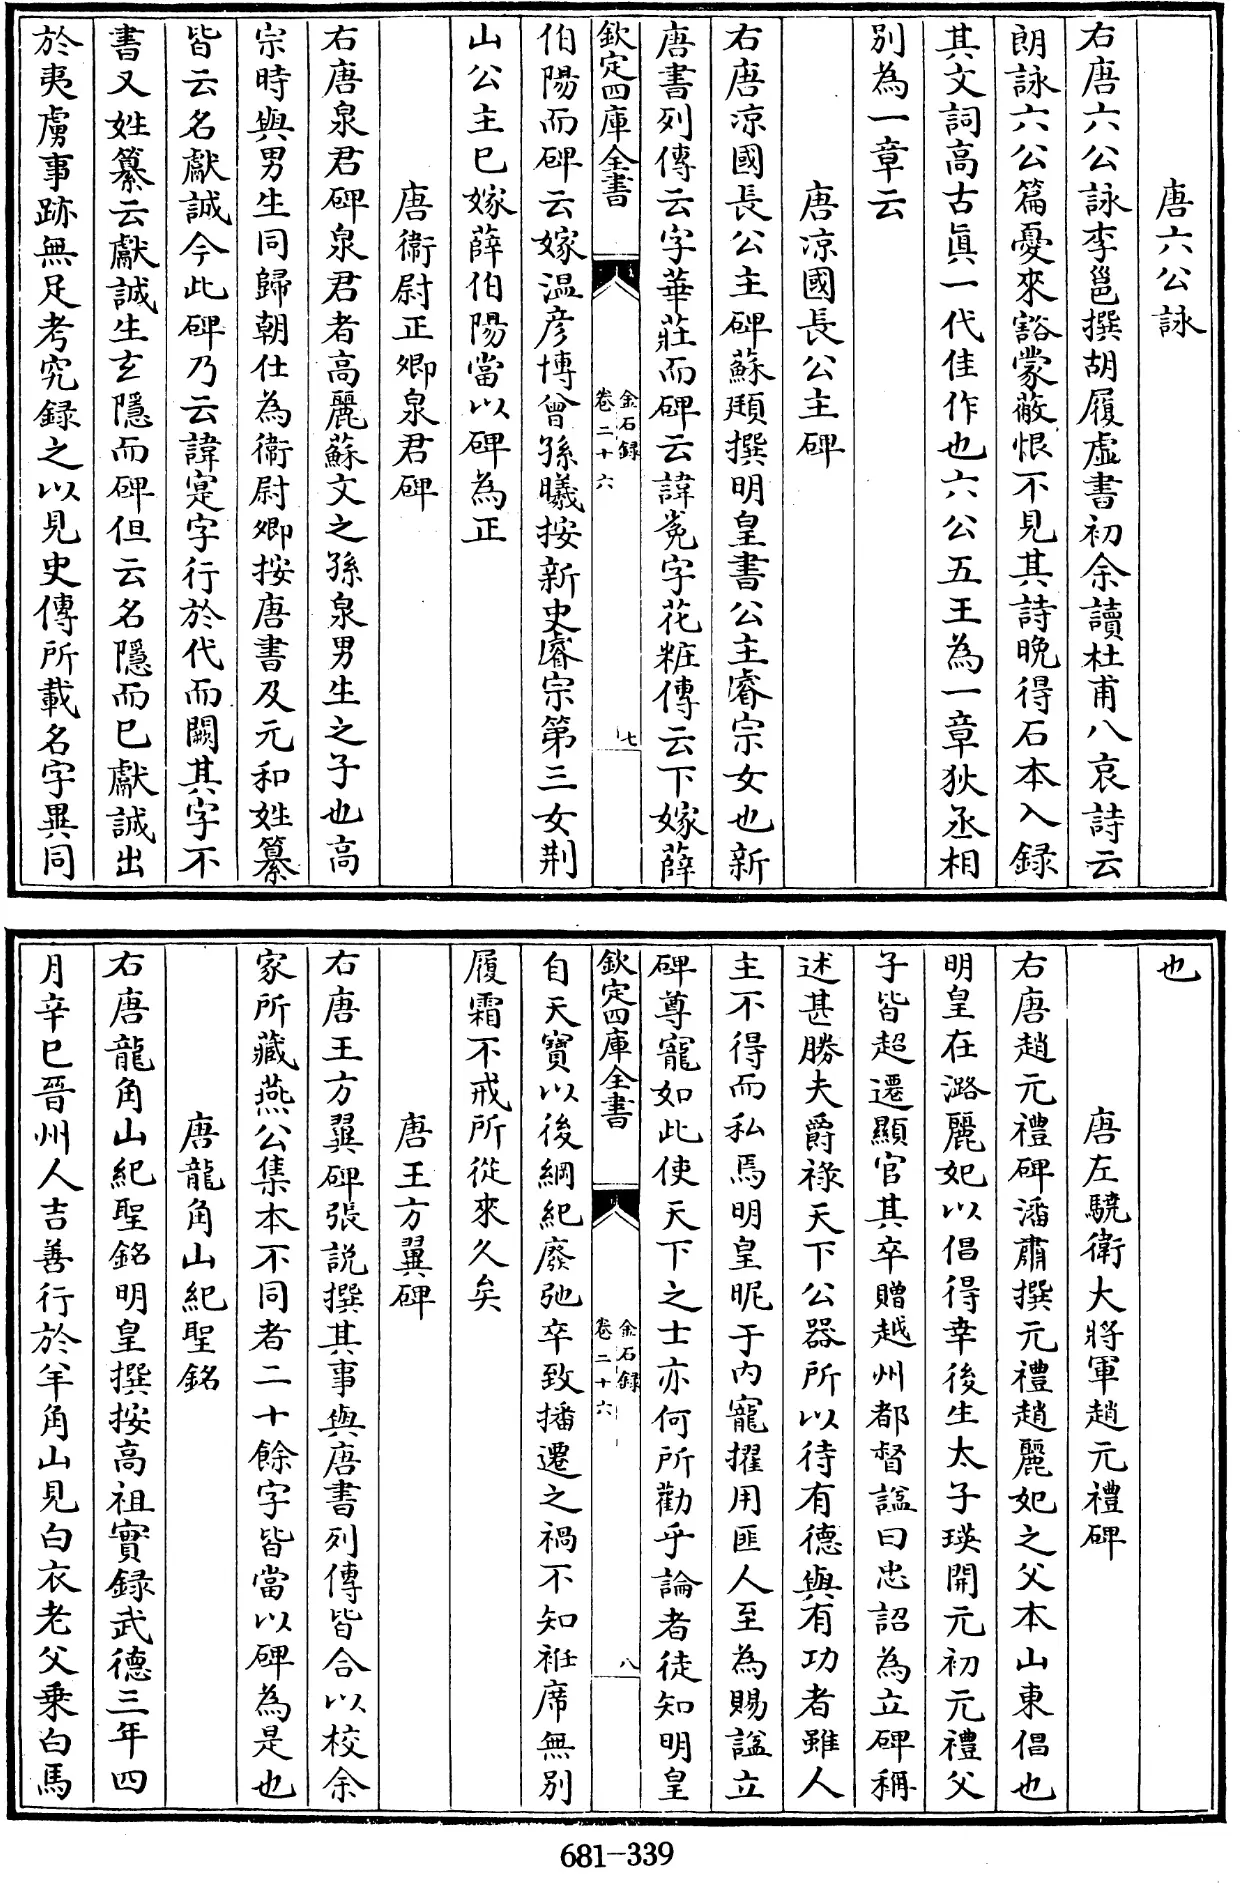 唐六公詠
右唐六公詠李邕撰胡履虛書初余讀杜甫八哀詩云
朗詠六公篇憂來豁蒙蔽恨不見其詩晚得石本入録
其文詞高古眞一代佳作也六公五王為一章狄丞相
别為一章云
唐凉國長公主碑
右唐凉國長公主碑蘇頲撰明皇書公主睿宗女也新
唐書列傳云字華莊而碑云諱㝹字花粧傳云下嫁薛
欽定四庫全書
金石録
卷二十六
七
伯陽而碑云嫁温彦博曾孫曦按新史睿宗第三女荆
山公主已嫁薛伯陽當以碑為正
唐衞尉正卿泉君碑
右唐泉君碑泉君者高麗蘇文之孫泉男生之子也高
宗時與男生同歸朝仕為衞尉卿按唐書及元和姓纂
皆云名獻誠今此碑乃云諱寔字行於代而闕其字不
書又姓纂云獻誠生玄隱而碑但云名隱而已獻誠出
於夷虜事跡無足考究録之以見史傳所載名字異同
也
唐左驍衛大將軍趙元禮碑
右唐趙元禮碑潘肅撰元禮趙麗妃之父本山東倡也
明皇在潞麗妃以倡得幸後生太子瑛開元初元禮父
子皆超遷顯官其卒贈越州都督諡曰忠詔為立碑稱
述甚勝夫爵祿天下公器所以待有德與有功者雖人
主不得而私焉明皇昵于内寵擢用匪人至為賜諡立
碑尊寵如此使天下之士亦何所勸乎論者徒知明皇
欽定四庫全書
金石録
卷二十六
八
自天寶以後綱紀廢弛卒致播遷之禍不知袵席無别
履霜不戒所從來久矣
唐王方翼碑
右唐王方翼碑張説撰其事與唐書列傳皆合以校余
家所藏燕公集本不同者二十餘字皆當以碑為是也
唐龍角山紀聖銘
右唐龍角山紀聖銘明皇撰按高祖實録武德三年四
月辛巳晉州人吉善行於羊角山見白衣老父乘白馬
681-339